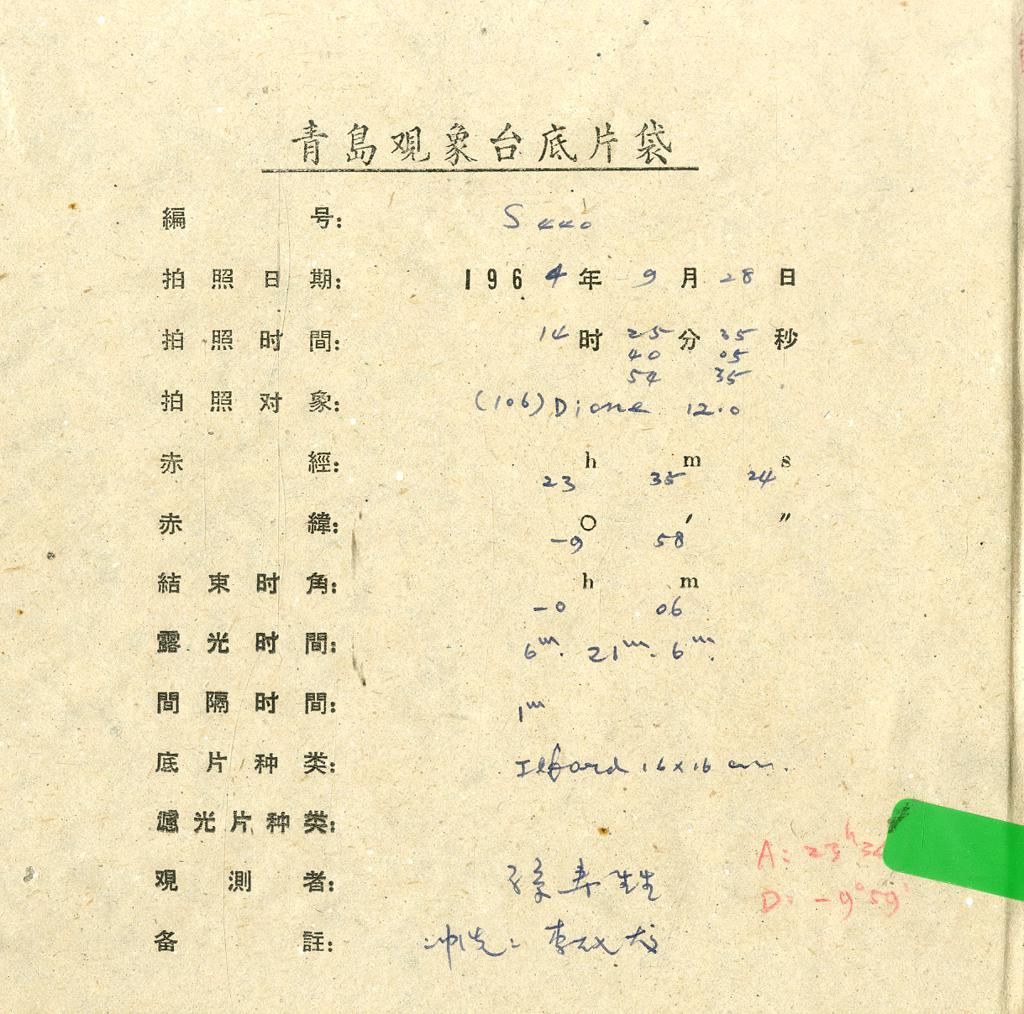 青島观象台底片袋
編 号: S 440
拍照日期: 1964年 9月28日
拍照时間: 14时25分35秒
40 05
54 35
拍照对象: (106) Dione 12.0
赤 經: 23h 35m 24s
赤 緯: -9° 58′ ″
結束时角: -0h 06m
露光时間: 6m. 21m. 6m.
間隔时間: 1m
底片种类: Ilford 16×16 cm.
濾光片种类:
A: 23h
观測者: 孫寿胜
D: -9°59′
备 註: 冲洗: 李